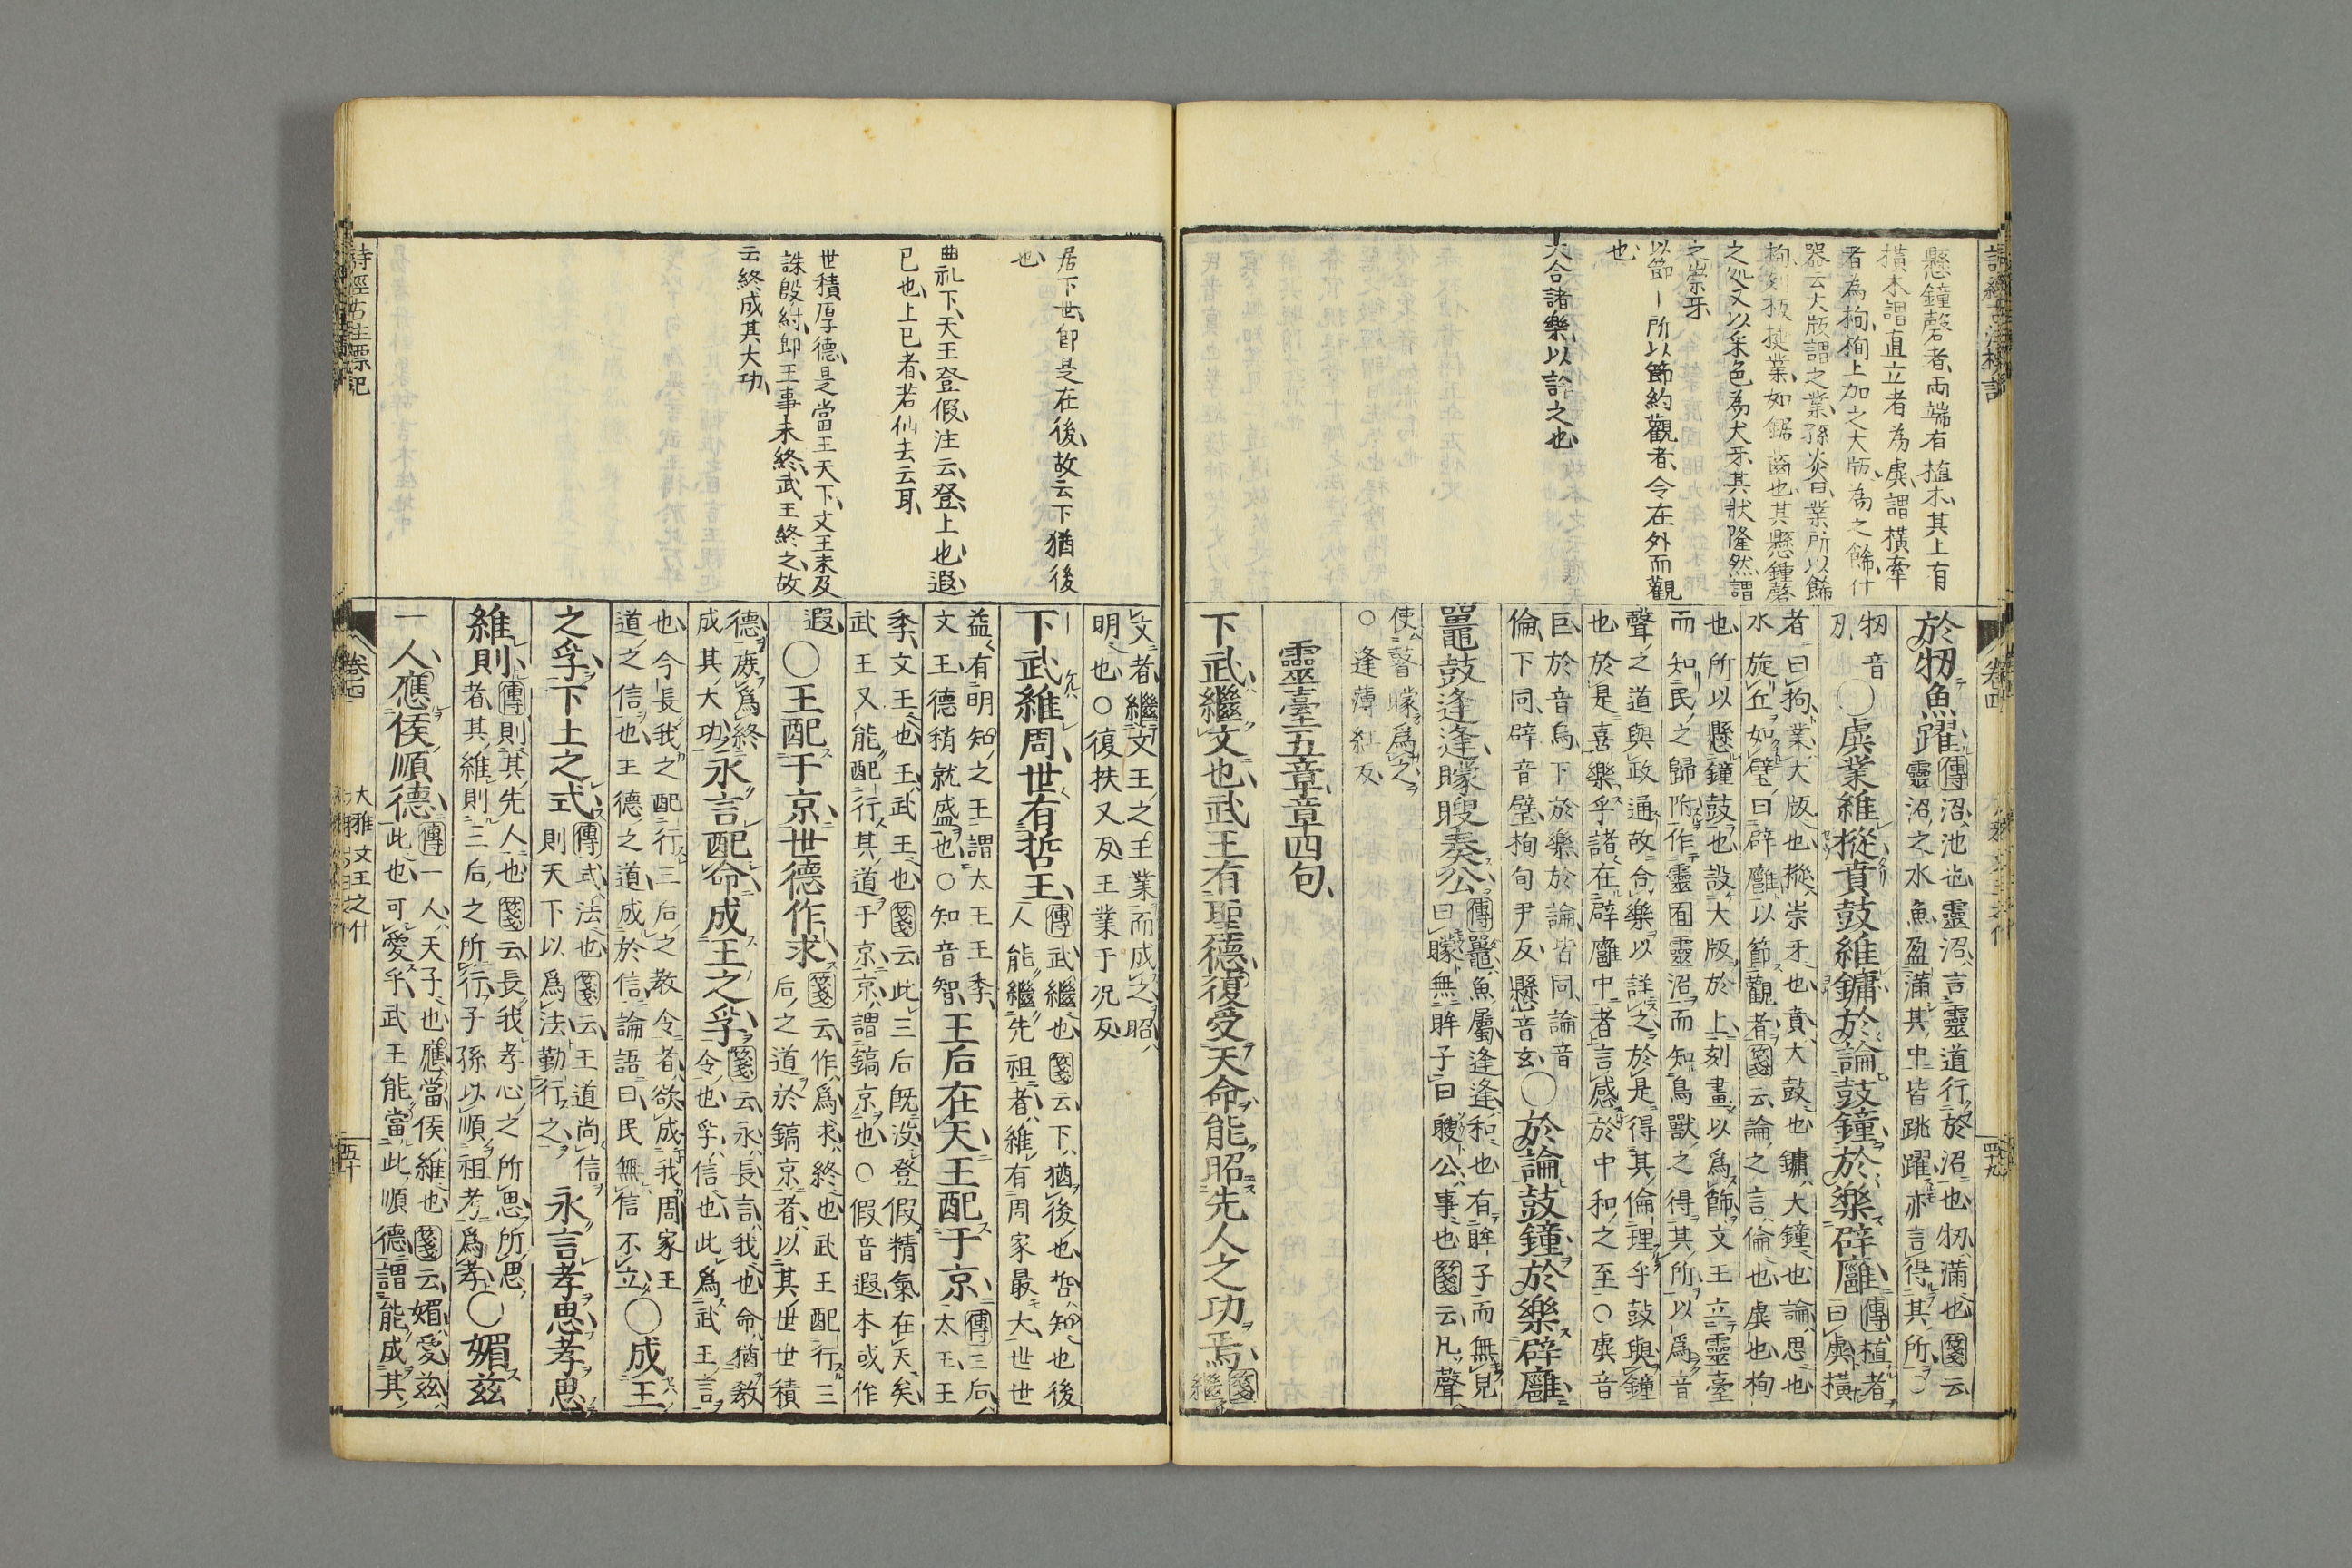 懸鐘磬者兩端有植木其上有
橫木謂直立者為虡謂橫牽
者為栒栒上加之大版為之餙什
器云大版謂之業孫炎曰業所以餙
栒刻板捷業如鋸齒也其懸鐘磬
之処又以采色為大牙其狀隆然謂
之崇牙
以節｜所以節約觀者令在外而觀
也
大合諸樂以論之也
於牣魚躍傳沼池也靈沼言靈道行於沼也牣滿也箋云
靈沼之水魚盈滿其中皆跳躍亦言得其所○
牣音
刃○虡業維樅賁鼓維鏞於論鼓鐘於樂辟廱傳植者
曰虡橫
者曰栒業大版也樅崇牙也賁大鼓也鏞大鐘也論思也
水旋丘如璧曰辟廱以節觀者箋云論之言倫也虡也栒
也所以懸鐘鼓也設大版於上刻畫以為飾文王立靈臺
而知民之歸附作靈囿靈沼而知鳥獸之得其所以為音
聲之道與政通故合樂以詳之於是得其倫理乎鼓與鐘
也於是喜樂乎諸在辟廱中者言感於中和之至○虡音
巨於音烏下於樂於論皆同論音
倫下同辟音璧栒旬尹反懸音玄○於論鼓鐘於樂辟廱
鼉鼓逢逢矇瞍奏公傳鼉魚屬逢逢和也有眸子而無見
曰矇無眸子曰瞍公事也箋云凡聲
使瞽矇為之
○逢薄紅反
靈臺五章章四句
下武繼文也武王有聖德復受天命能昭先人之功焉箋
繼
文者繼文王之王業而成之昭
明也○復扶又反王業于況反
下武維周世有哲王傳武繼也箋云下猶後也哲知也後
人能繼先祖者維有周家最大世世
益有明知之王謂太王王季
文王德稍就盛也○知音智王后在天王配于京傳三后
太王王
季文王也王武王也箋云此三后既没登假精氣在天矣
武王又能配行其道于京京謂鎬京也○假音遐本或作
遐○王配于京世德作求箋云作為求終也武王配行三
后之道於鎬京者以其世世積
德族為終
成其大功永言配命成王之孚箋云永長言我也命猶教
令也孚信也此為武王言
也今長我之配行三后之教令者欲成我周家王
道之信也王德之道成於信論語曰民無信不立○成王
之孚下土之式傳式法也箋云王道尚信
則天下以為法勤行之永言孝思孝思
維則傳則其先人也箋云長我孝心之所思所思
者其維則三后之所行子孫以順祖考為孝○媚茲
一人應侯順德傳一人天子也應當侯維也箋云媚愛茲
此也可愛乎武王能當此順德謂能成其
居下世即是在後故云下猶後
也
曲礼下天王登假注云登上也遐
已也上已者若仙去云耳
世積厚德是當王天下文王未及
誅殷紂即王事未終武王終之故
云終成其大功
詩經古注標記
卷四
大雅文王之什
五十
詩經古注標記
卷四
四十九